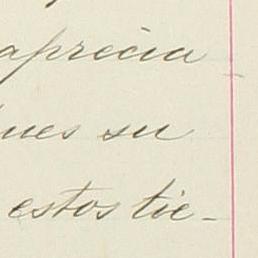 aprecia
ues su
estos tie-